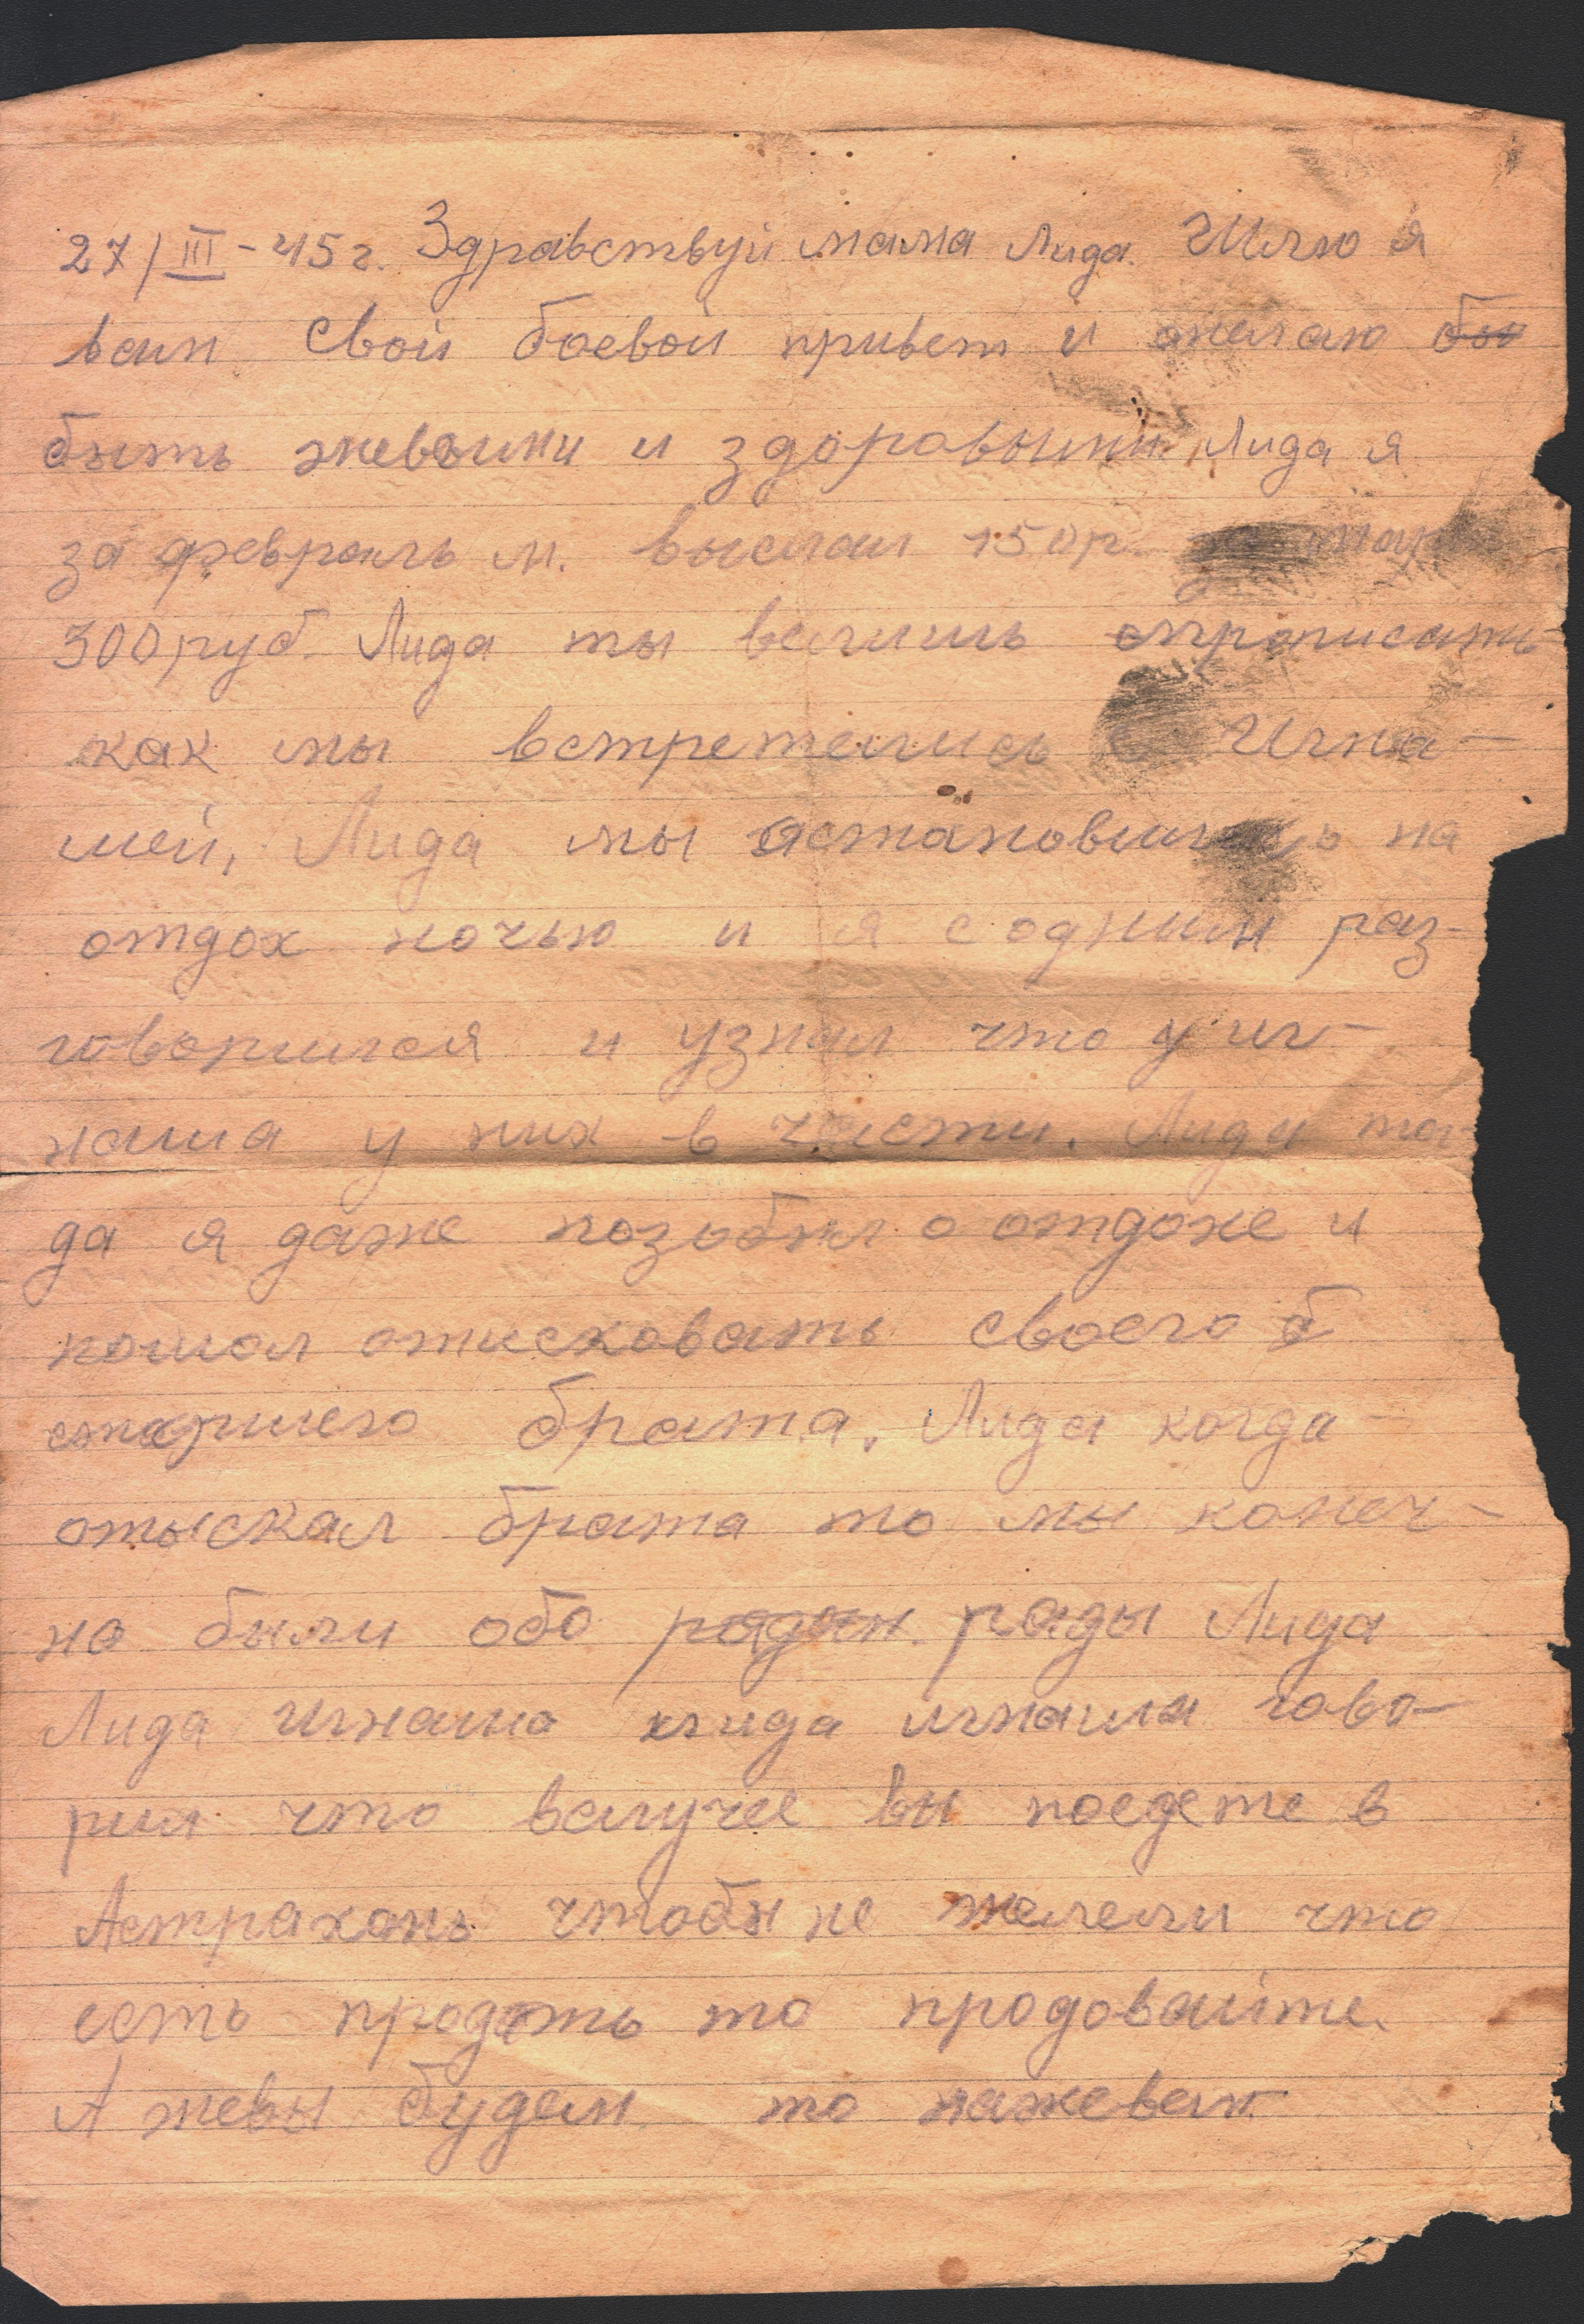 27/III-45г. Здравствуй мама Лида. Шлю я
вам свой боевой привет и желаю бы
быть жевыми и здоровыми. Лида я
за февраль м. выслал 150р.
300руб. Лида ты велишь опрописать
как мы встретелись Игна-
шей, Лида мы астановились на
отдох ночью и я с одним раз-
говорился и узнал что у иг-
наша у них в части. Лида та-
да я даже позобыл о отдохе и
пошол отисковать своего б
старшего брата. Лида когда
отыскал брата то мы конеч-
но были обо радын рады Лида
Лида Игнаша лида игнаша гово-
рил что вслучее вы поедете в
Астрахань чтобы не желели что
есть продать то продовайте.
А жевы будем то нажевем